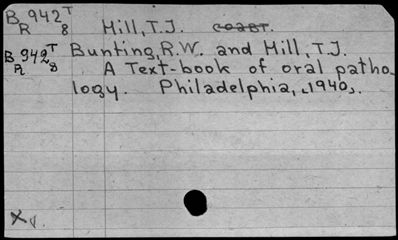 B 942 T
R 8
Hill, T.J.
B 942 T
R 8
Bunting, R.W. and Hill, T.J.
A Text-book of oral patho-
logy. Philadelphia, 1940.